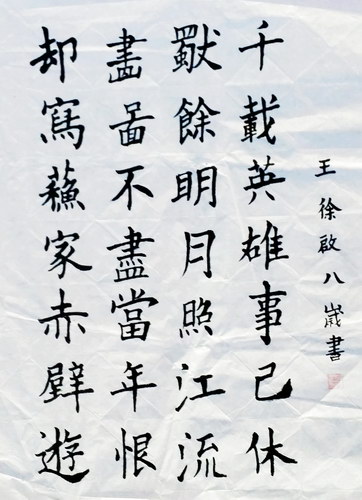 王徐啟八歲書
千載英雄事已休
獨餘明月照江流
畵啚不盡當年恨
却寫蘓家赤壁遊